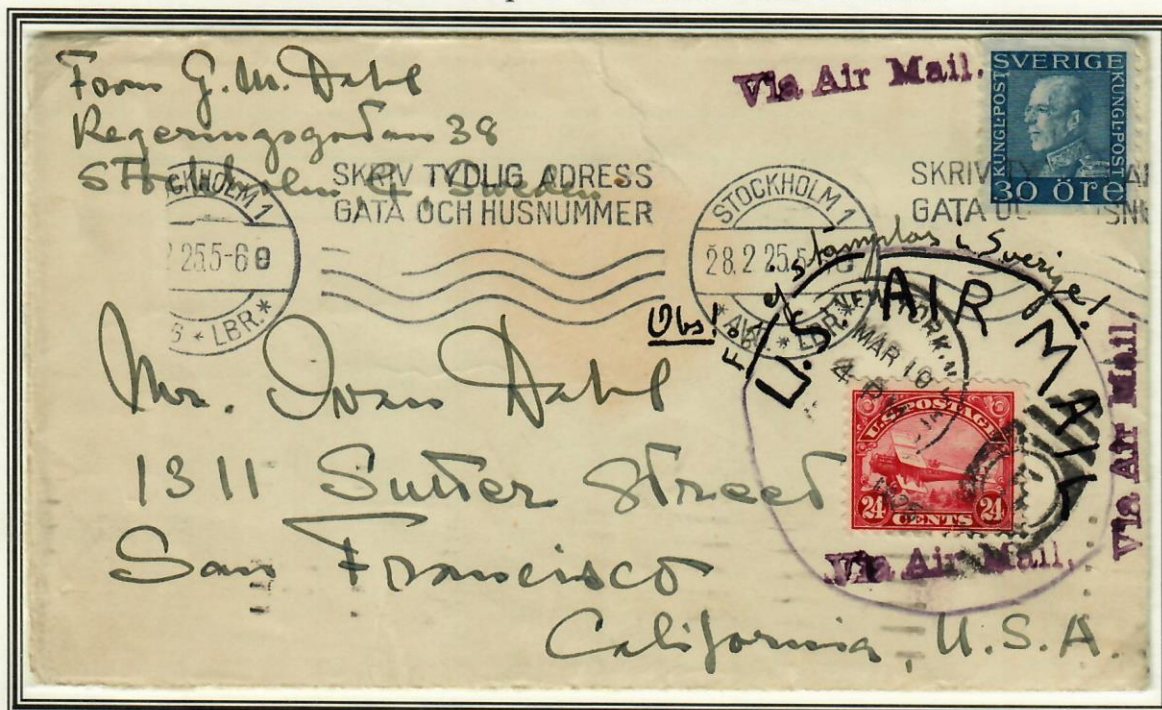 From G. M. Dahl
Regeringsgatan 38
Stockholm Sweden
Via Air Mail.
SVERIGE
KUNGL·POST
KUNGL·POST
30 öre
CKHOLM 1
2 25.5-6 e
* LBR.*
SKRIV TYDLIG ADRESS
GATA OCH HUSNUMMER
STOCKHOLM 1
28.2 25.5
LBR.*
SKRIV
GATA
Obs!
F. ej stämplas i Sverige!
U.S. AIR MAIL
NEW YORK, N
MAR 10
4
U.S. POSTAGE
24 CENTS 24
Via Air Mail.
Via Air Mail.
Mr. Ivan Dahl
1311 Sutter Street
San Francisco
California, U.S.A.